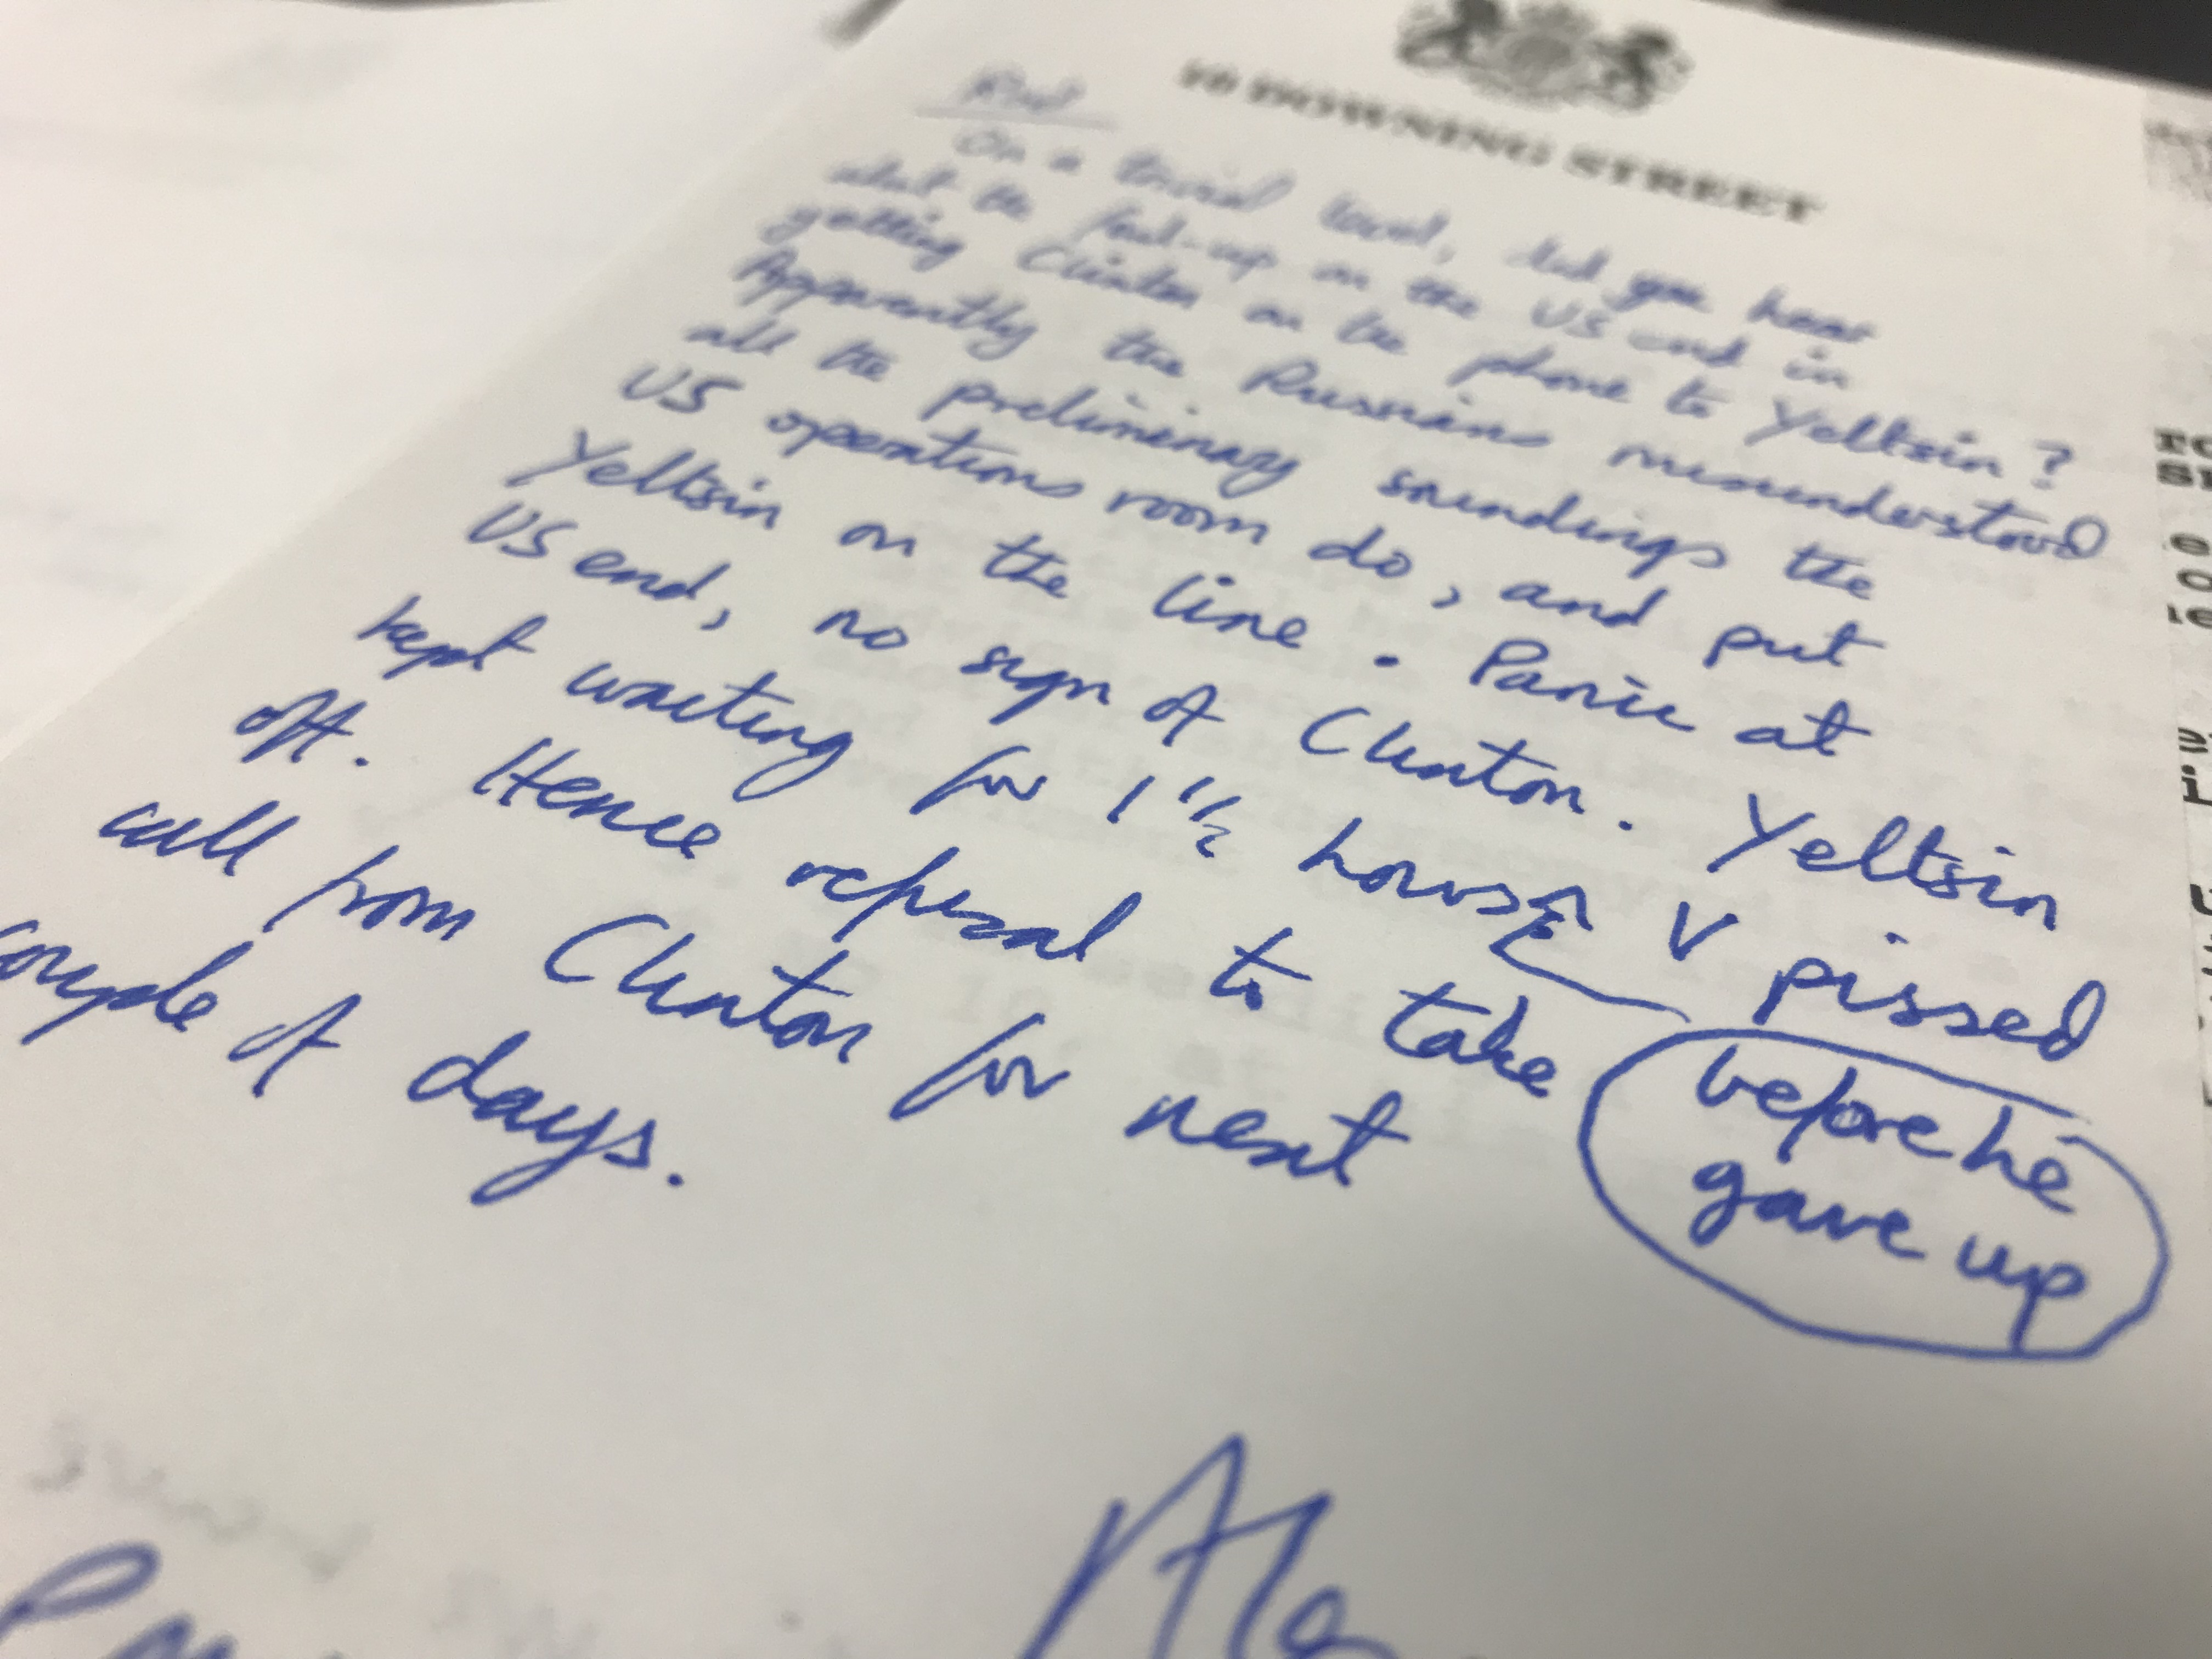 10 DOWNING STREET
Rod
On a trivial level, did you hear
about the foul-up on the US end in
getting Clinton on the phone to Yeltsin?
Apparently the Russians misunderstood
all the preliminary soundings the
US operations room do, and put
Yeltsin on the line. Panic at
US end, no sign of Clinton. Yeltsin
kept waiting for 1 1/2 hours V pissed
before he
gave up
off. Hence refusal to take
call from Clinton for next
couple of days.